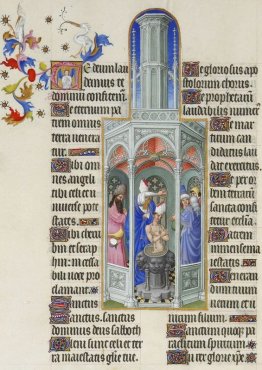 Te deum lau
damus te
dominum confitemur.
Te eternum pa
trem omnis
terra venera
tur. Tibi om
nes angeli
tibi celi et u
niverse pote
states.
Tibi cheru
bin et seraph
hin: incessa
bili voce pro
clamant.
Sanctus
Sanctus. sanctus
dominus deus sabaoth
Pleni sunt celi et ter
ra maiestatis glorie tue.
Te gloriosus apo
stolorum chorus.
Te prophetarum
laudabilis numerus
Te mar
tirum can
didatus lau
dat exercitus.
Te per or
bem terrarum
sancta confi
tetur ecclesia
Patrem
immense ma
iestatis.
Veneran
dum tuum
verum et u
nicum filium.
Sanctum quoque pa
raclitum spiritum.
Tu rex glorie xpe.